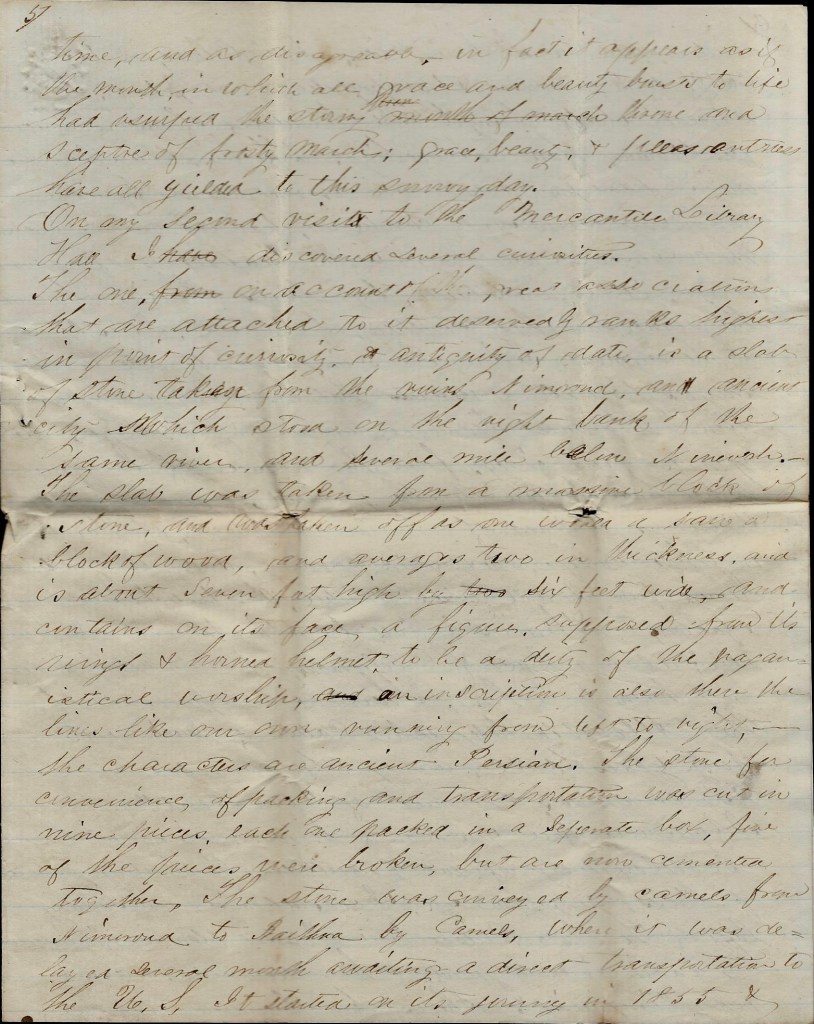 5/
time, and as disagreeable, - in fact it appears as if
the month in which all grace and beauty bursts to life
had usurped the stormy month of march throne and
sceptre of frosty March; grace, beauty, & pleasantness
have all yielded to this snowy day.
On my second visit to the Mercantile Library
Hall I have discovered several curiosities.
The one, from on account of the great associations
that are attached to it deservedly ranks highest
in point of curiosity, & antiquity of date, is a slab
of stone taken from the ruins Nimroud, an ancient
city which stood on the right bank of the
same river, and several mile below Nineveh. -
The slab was taken from a massive block of
stone, and was taken off as one would a saw a
block of wood, and averages two in thickness, and
is about seven feet high by two six feet wide, and
contains on its face a figure, supposed from its
wings & horned helmet, to be a deity of the pagan-
istical worship, and an inscription is also there the
lines like our own running from left to right, -
the characters are ancient Persian. The stone for
convenience of packing and transportation was cut in
nine pieces, each one packed in a seperate box, five
of the pieces were broken, but are now cemented
together, The stone was conveyed by camels from
Nimroud to by Camels, where it was de=
layed several month awaiting a direct transportation to
the U. S. It started on its in 1855 &